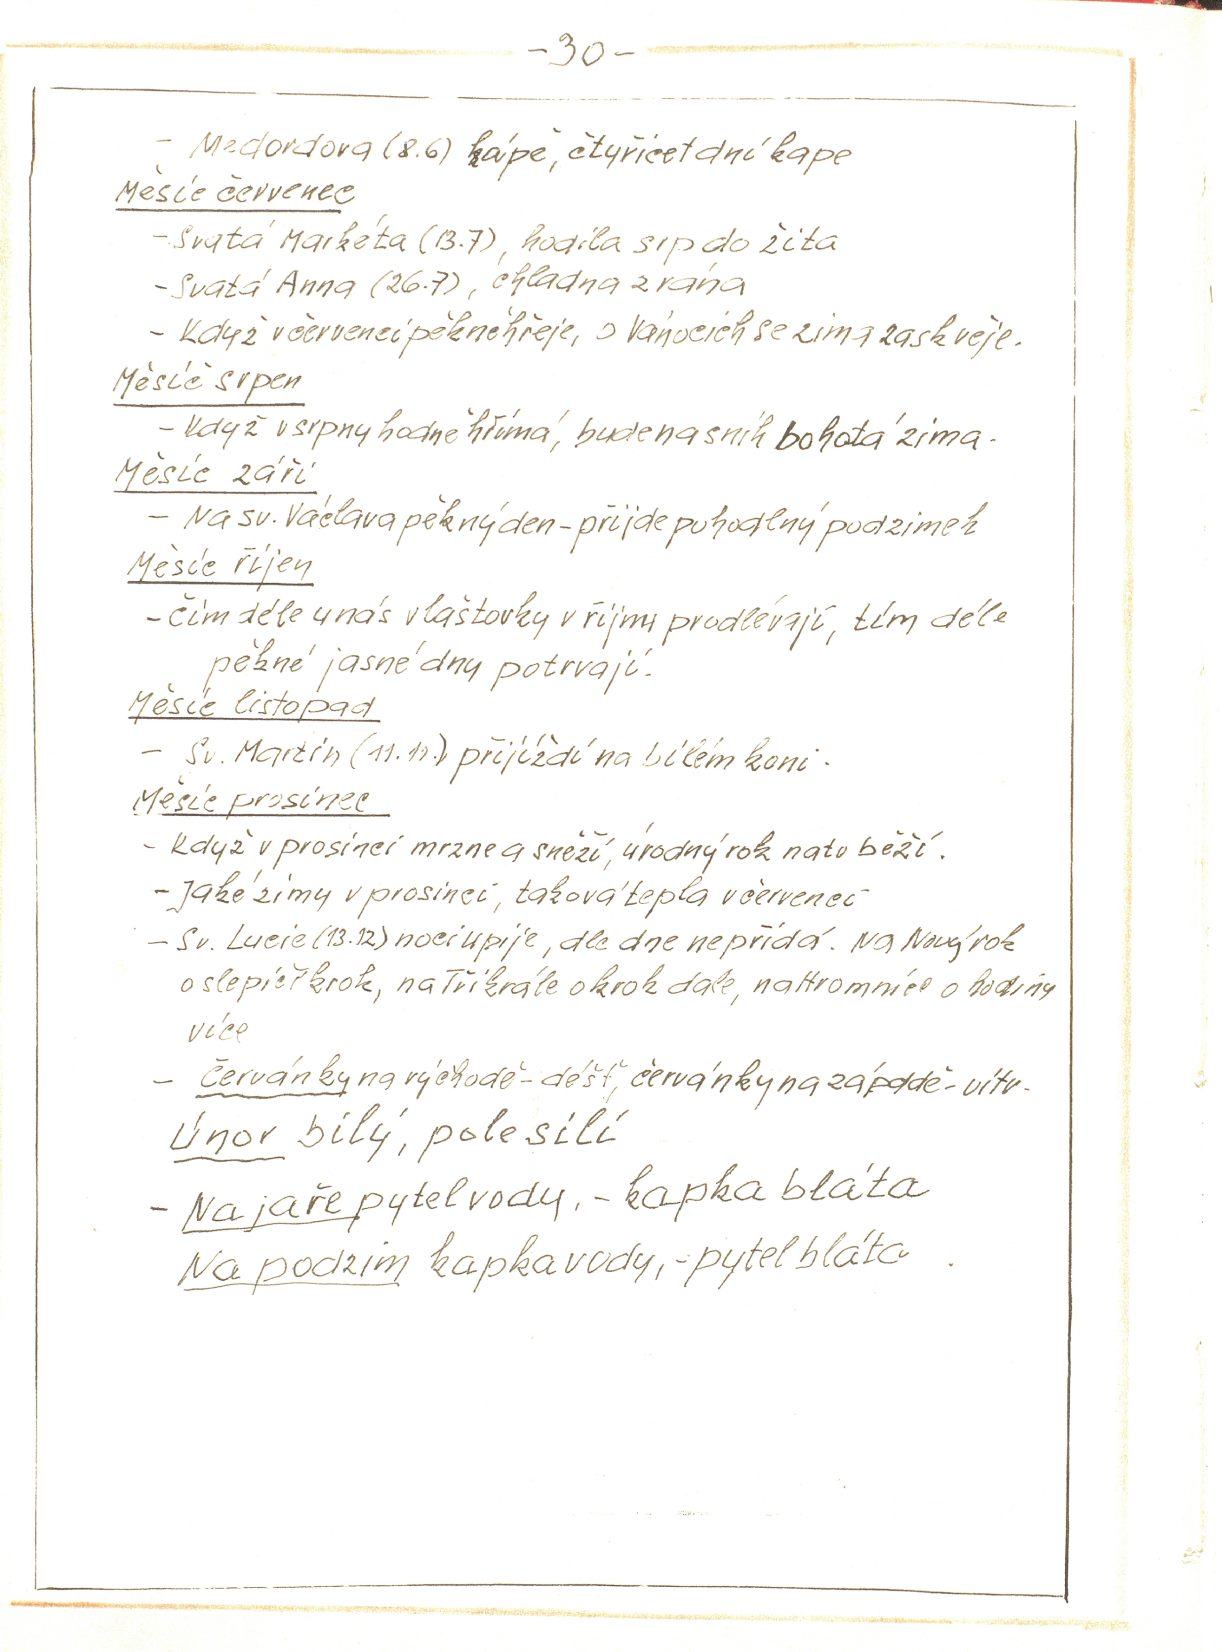 - 30 -
- Medordova (8.6) kápě, čtyřicet dní kape
Měsíc červenec
- Svatá Markéta (13.7), hodila srp do žita
- Svatá Anna (26.7), chladna z rána
- Když v červenci pěkně hřeje, o Vánocích se zima zaskvěje.
Měsíc srpen
- Když v srpnu hodně hřímá, bude na sníh bohatá zima.
Měsíc září
- Na sv. Václava pěkný den - přijde pohodlný podzimek
Měsíc říjen
- Čím déle u nás vlaštovky v říjnu prodlévají, tím déle
pěkné jasné dny potrvají.
Měsíc listopad
- Sv. Martin (11.11.) přijíždí na bílém koni.
Měsíc prosinec
- Když v prosinci mrzne a sněží, úrodný rok nato běží.
- Jaké zimy v prosinci, taková tepla v červenci
- Sv. Lucie (13.12) noci upije, dle dne nepřidá. Na Nový rok
o slepičí krok, na Tři krále o krok dále, na Hromnice o hodiny
více
- Červánky na východě - déšť, červánky na západě - vítr.
Únor bílý, pole sílí
- Na jaře pytel vody, - kapka bláta
Na podzim kapka vody, - pytel bláta.